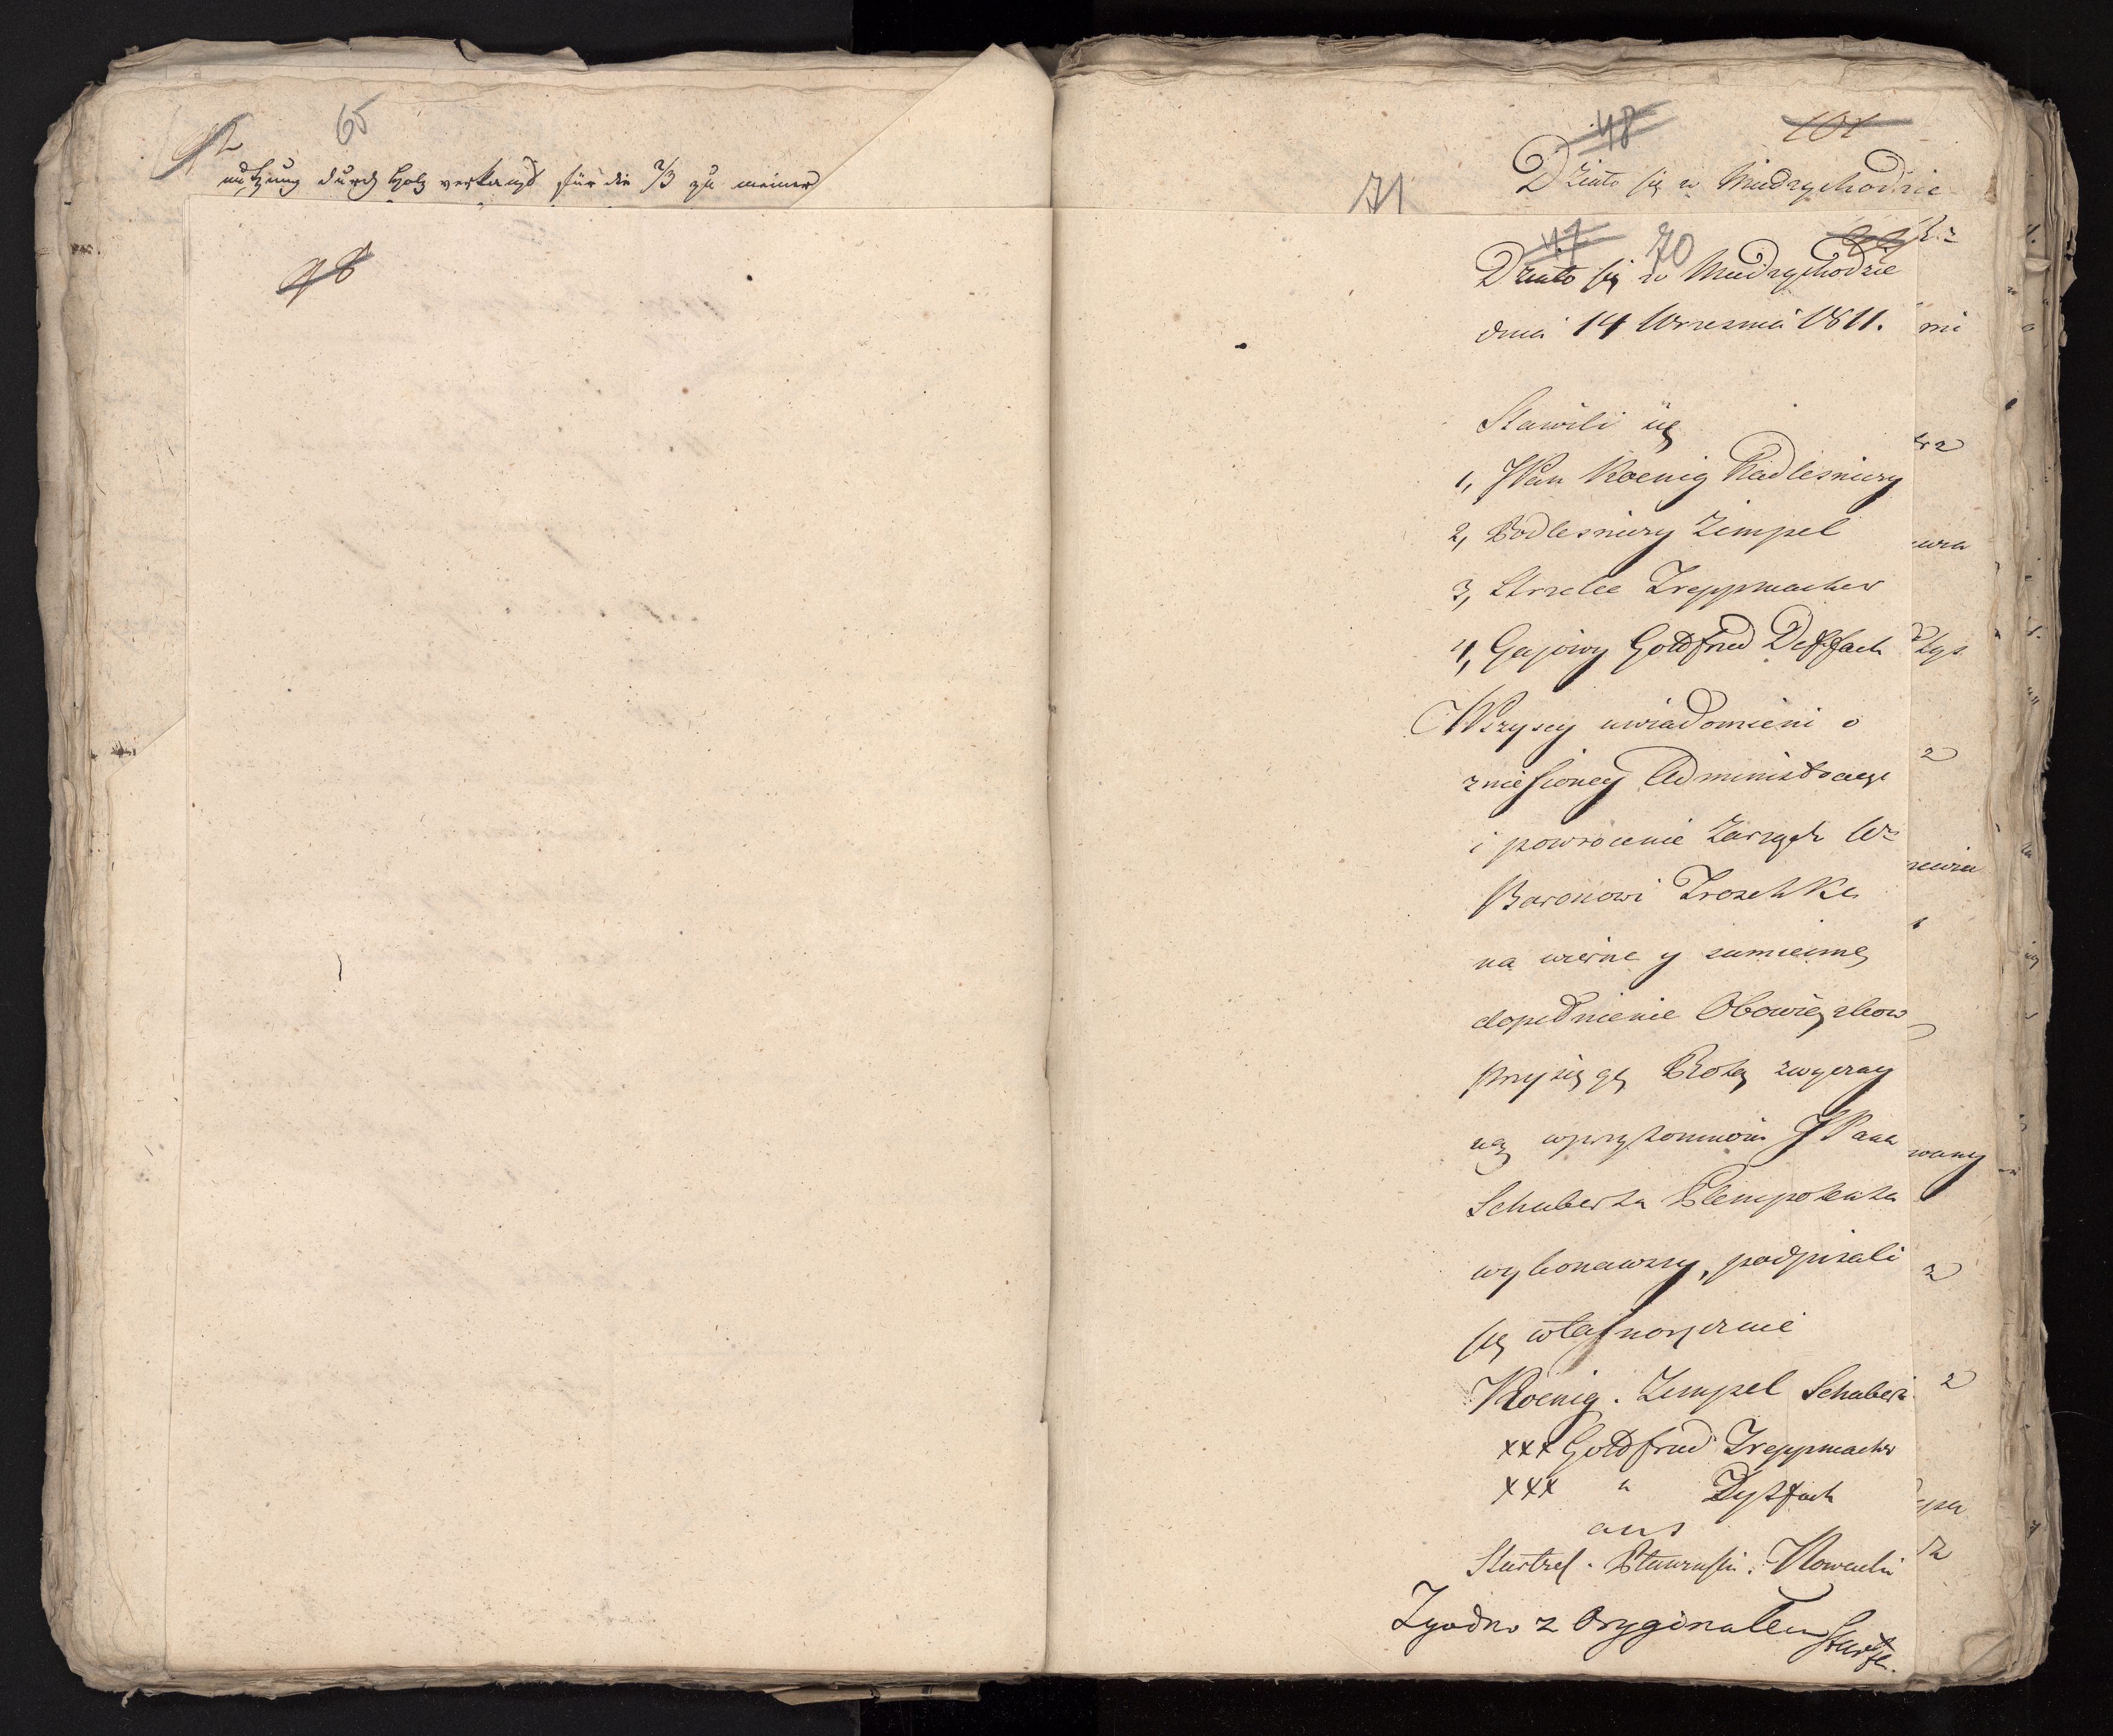 65
nutzung durch Holz verkauf für die 2/3 zu meiner
98
48 101
71
Działo się w Miedzychodzie
47 70 99
Działo się w Miedzychodzie
dnia 14 Wrzesnia 1811.
Stawili się
1, JPan Koenig Nadlesniczy
2, Podlesniczy Zimpel
3, Strzelec Treppmacher
4, Gajowy Gottfried
Wszyscy uwiadomieni o
zniesioney Administracyi
i powrócenie Zarządu W
Baronowi Troschke
na wierne y sumienne
dopełnienie Obowiązkow
przysięgę Rotą zwyczay
ną w przytomności JPana
Schuberta Plenipotenta
wykonawszy, podpisali
się własnoręcznie
Koenig. Zimpel Schubert
xxx Gottfried Treppmacher
xxx "
aus
Zgodno z Oryginałem